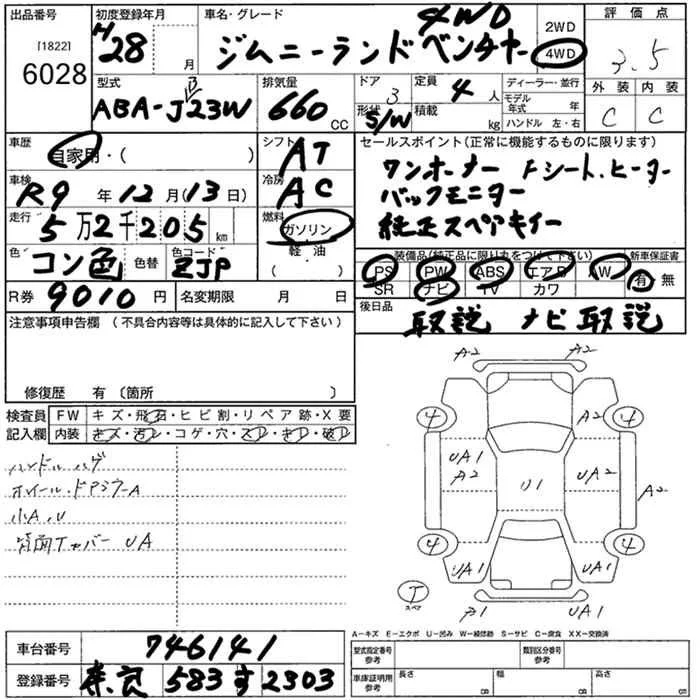 出品番号 [1822] 6028
初度登録年月 H28 月
車名・グレード 4WD ジムニーランドベンチャー
2WD 4WD
評価点 3.5
型式 ABA-JB23W
排気量 660 CC
ドア 3 形状 S/W
定員 4 人 積載 kg
ディーラー・並行
モデル年式 年
ハンドル 左・右
外装 内装
C C
車歴 自家用・( )
シフト AT
車検 R9 年 12 月(13日)
冷房 AC
走行 5万2千205 km
燃料 ガソリン
軽・油
( )
色 コン色 色替 色コード ZJP
R券 9010 円 名変期限 月 日
セールスポイント(正常に機能するものに限ります)
ワンオーナー Fシート.ヒーター
バックモニター
純正スペアキイー
装備品(純正品に限り丸をつけて下さい) 新車保証書
PS PW ABS エアB AW 有・無
SR ナビ TV カワ
後日品 取説 ナビ取説
注意事項申告欄 (不具合内容等は具体的に記入して下さい)
修復歴 有 (箇所 )
検査員 FW キズ・飛石・ヒビ割・リペア跡・X要
記入欄 内装 キズ・汚レ・コゲ・穴・スレ・キレ・破レ
ハンドルハゲ
ホイール・ドアミラーA
小A.U
背面Tカバー UA
車台番号 746141
登録番号 奈良 583 す 2303
A2 A2
4 A2 4
UA1 A2 U1 UA2 A2
4 UA1 UA1 4
T スペア
A1 UA1
A-キズ E-エクボ U-凹み W-補修跡 S-サビ C-腐食 XX-交換済
型式指定番号 参考 類別区分番号 参考
車庫証明用 参考 長さ cm 幅 cm 高さ cm